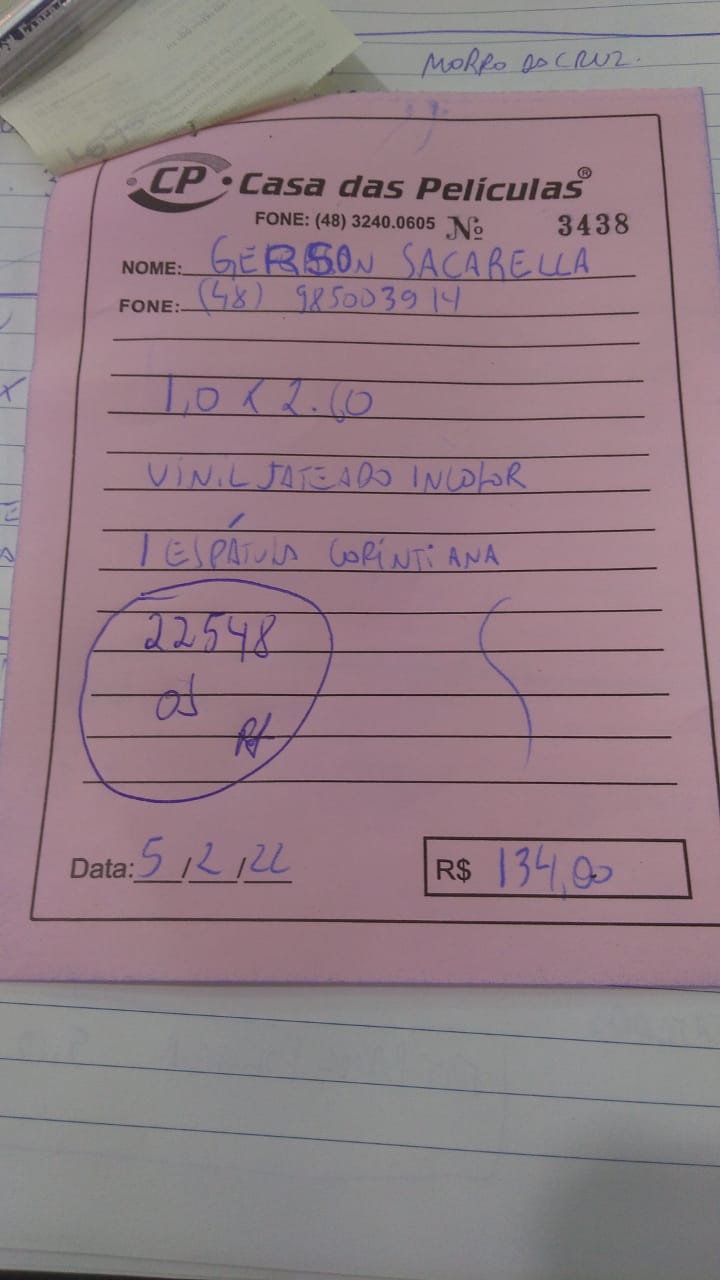 MORRO DA CRUZ.
CP Casa das Películas®
FONE: (48) 3240.0605 Nº 3438
NOME: GERSON SACARELLA
FONE: (48) 985003914
1,0 x 2.60
VINIL JATEADO INCOLOR
1 ESPÁTULA CORINTIANA
22548
OS
Data: 5/2/22
R$ 134,00